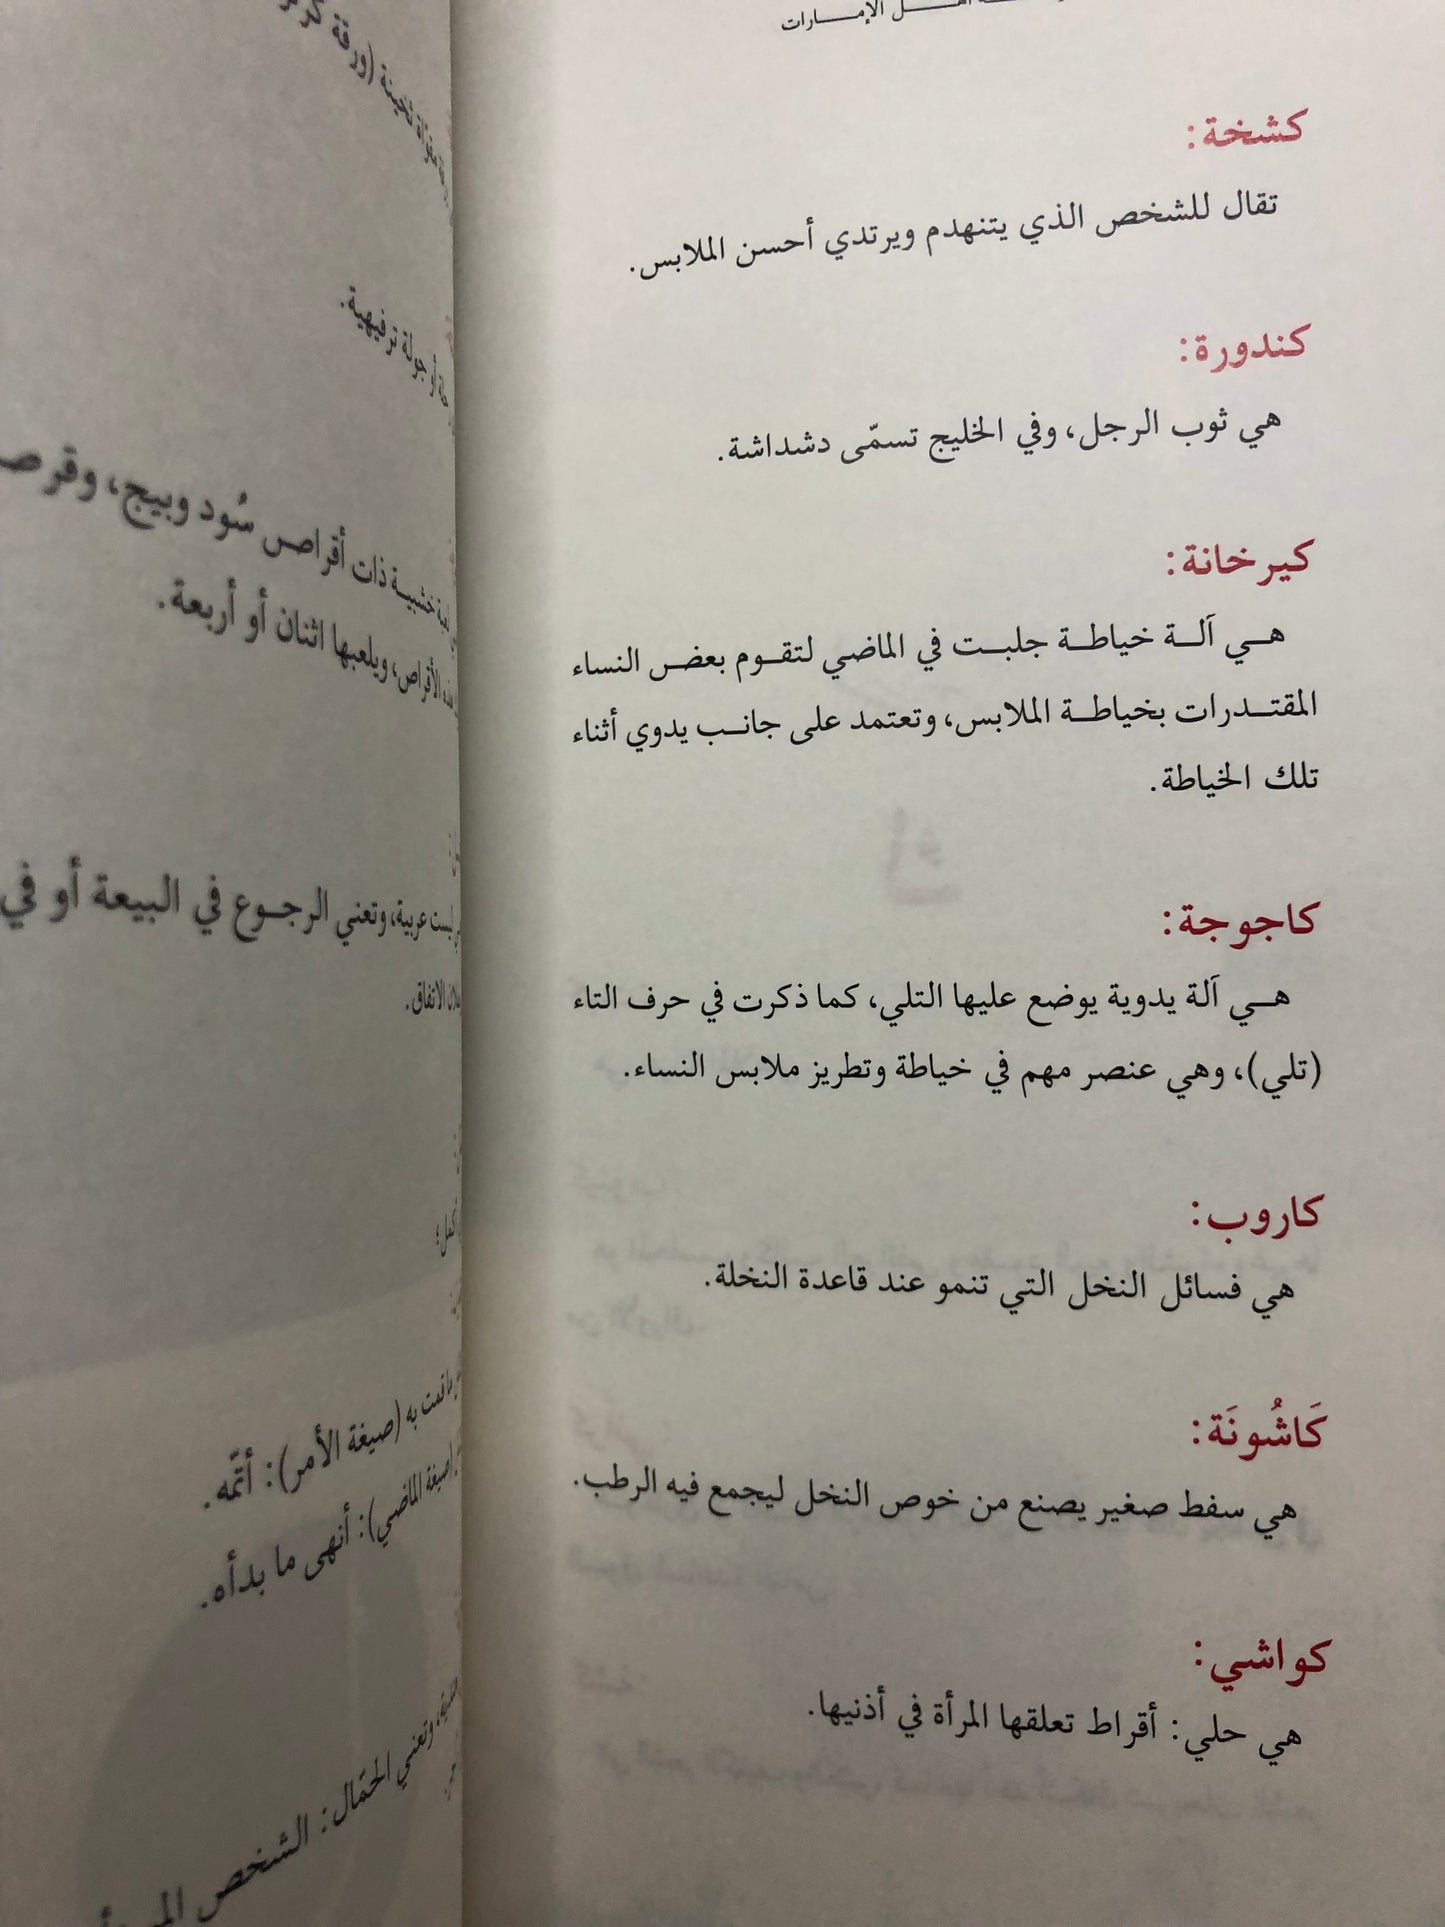 الإمـــــارات
كشخة:
تقال للشخص الذي يتنهدم ويرتدي أحسن الملابس.
كندورة:
هي ثوب الرجل، وفي الخليج تسمّى دشداشة.
كيرخانة:
هي آلة خياطة جلبت في الماضي لتقوم بعض النساء
المقتدرات بخياطة الملابس، وتعتمد على جانب يدوي أثناء
تلك الخياطة.
كاجوجة:
هي آلة يدوية يوضع عليها التلي، كما ذكرت في حرف التاء
(تلي)، وهي عنصر مهم في خياطة وتطريز ملابس النساء.
كاروب:
هي فسائل النخل التي تنمو عند قاعدة النخلة.
كَاشُونَة:
هي سفط صغير يصنع من خوص النخل ليجمع فيه الرطب.
كواشي:
هي حلي: أقراط تعلقها المرأة في أذنيها.
ثخينة (ورقة
أو جولة ترفيهية.
خشبية ذات أقراص سُود وبيج، وقرص
الأقراص، ويلعبها اثنان أو أربعة.
ليست عربية، وتعني الرجوع في البيعة أو في
الاتفاق.
قمت به (صيغة الأمر): أتمّه.
(صيغة الماضي): أنهى ما بدأه.
وتعني الحمّال: الشخص